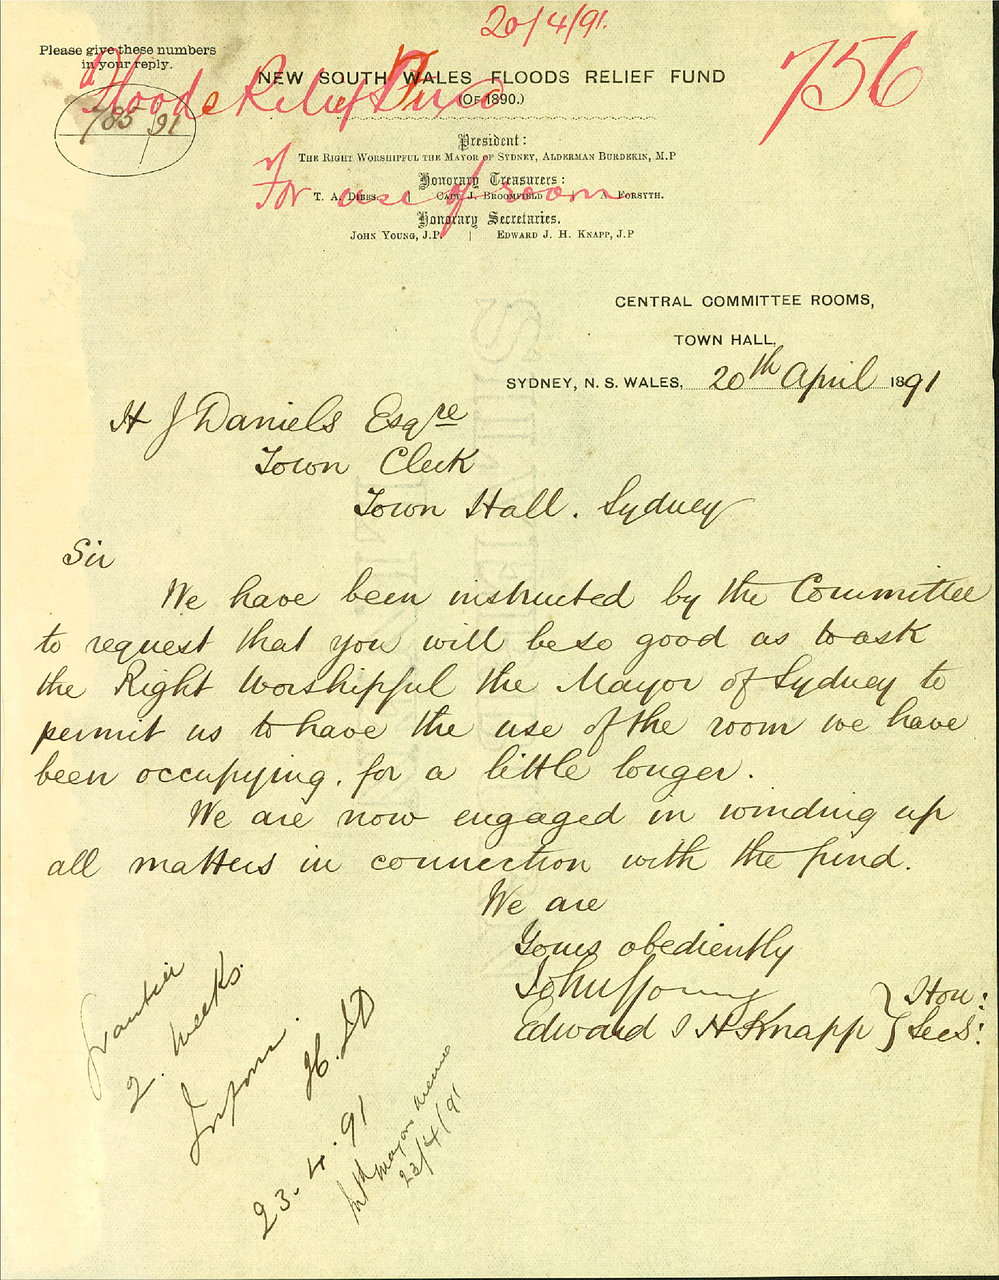 20/4/91.
Please give these numbers
in your reply.
785/91
756
NEW SOUTH WALES FLOODS RELIEF FUND
(OF 1890.)
Floods Relief Fund
President:
THE RIGHT WORSHIPFUL THE MAYOR OF SYDNEY, ALDERMAN BURDEKIN, M.P
Honorary Treasurers:
For use of room
T. A. DIBBS. | CAPT J. BROOMFIELD | A. FORSYTH.
Honorary Secretaries.
JOHN YOUNG, J.P. | EDWARD J. H. KNAPP, J.P
CENTRAL COMMITTEE ROOMS,
TOWN HALL,
SYDNEY, N. S. WALES, 20th April 1891
H J Daniels Esqre
Town Clerk
Town Hall. Sydney
Sir
We have been instructed by the Committee
to request that you will be so good as to ask
the Right Worshipful the Mayor of Sydney to
permit us to have the use of the room we have
been occupying, for a little longer.
We are now engaged in winding up
all matters in connection with the fund.
We are
Yours obediently
John Young
Edward J H Knapp } Hon: Secs:
further
2. weeks.
Inform.
H.J.D
23.4.91
23/4/91